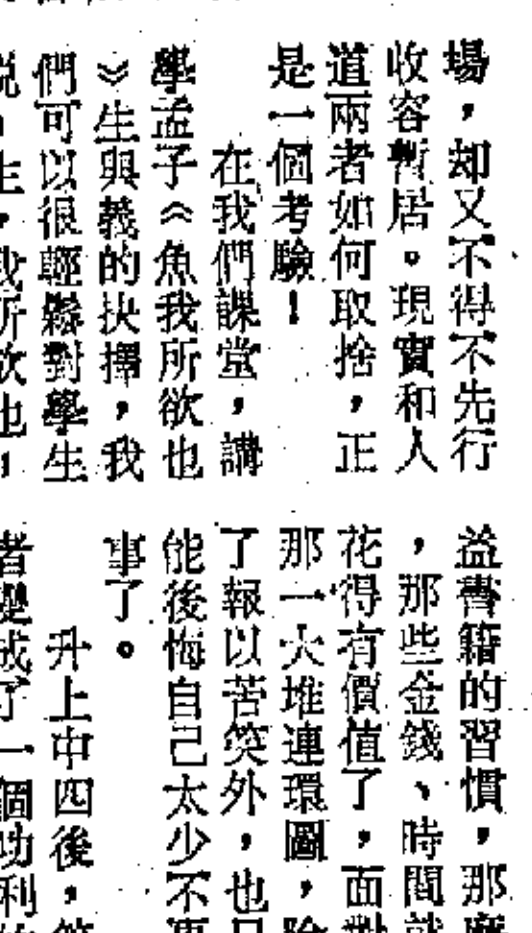 場，却又不得不先行
收容暫居。現實和人
道兩者如何取捨，正
是一個考驗！
在我們課堂，講
學孟子︽魚我所欲也
︾生與義的抉擇，我
們可以很輕鬆對學生
益書籍的習慣，那麼
，那些金錢、時間就
花得有價值了，面對
那一大堆連環圖，除
了報以苦笑外，也只
能後悔自己太少不更
事了。
升上中四後，筆
者變成了一個功利